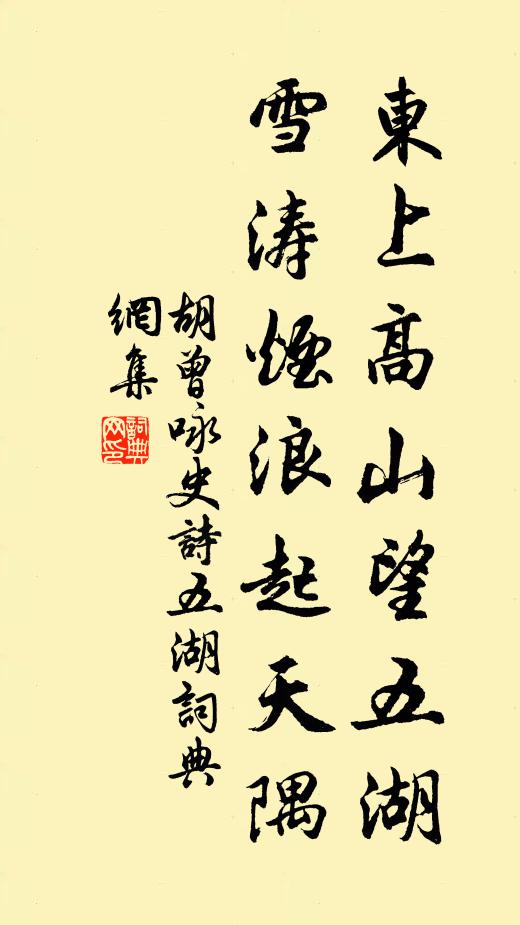 東上高山望五湖
雪濤煙浪起天隅
胡曾咏史詩五湖詞典
網集
詞典
网印